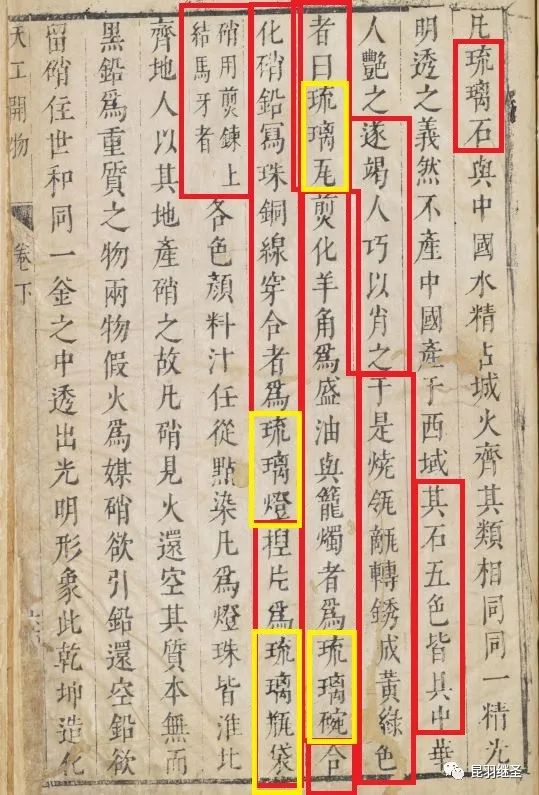 凡琉璃石與中國水精占城火齊其類相同同一精光
明透之義然不產中國產于西域其石五色皆具中華
人艷之遂竭人巧以肖之于是燒瓴甋轉銹成黃綠色
者曰琉璃瓦剪化羊角爲盛油與籠燭者爲琉璃碗合
化硝鉛寫珠銅線穿合者爲琉璃燈捏片爲琉璃瓶袋
硝用剪鍊上
結馬牙者
各色顏料汁任從點染凡爲燈珠皆淮北
齊地人以其地產硝之故凡硝見火還空其質本無而
黑鉛爲重質之物兩物假火爲媒硝欲引鉛還空鉛欲
留硝住世和同一釜之中透出光明形象此乾坤造化
天工開物
卷下
昆羽继圣